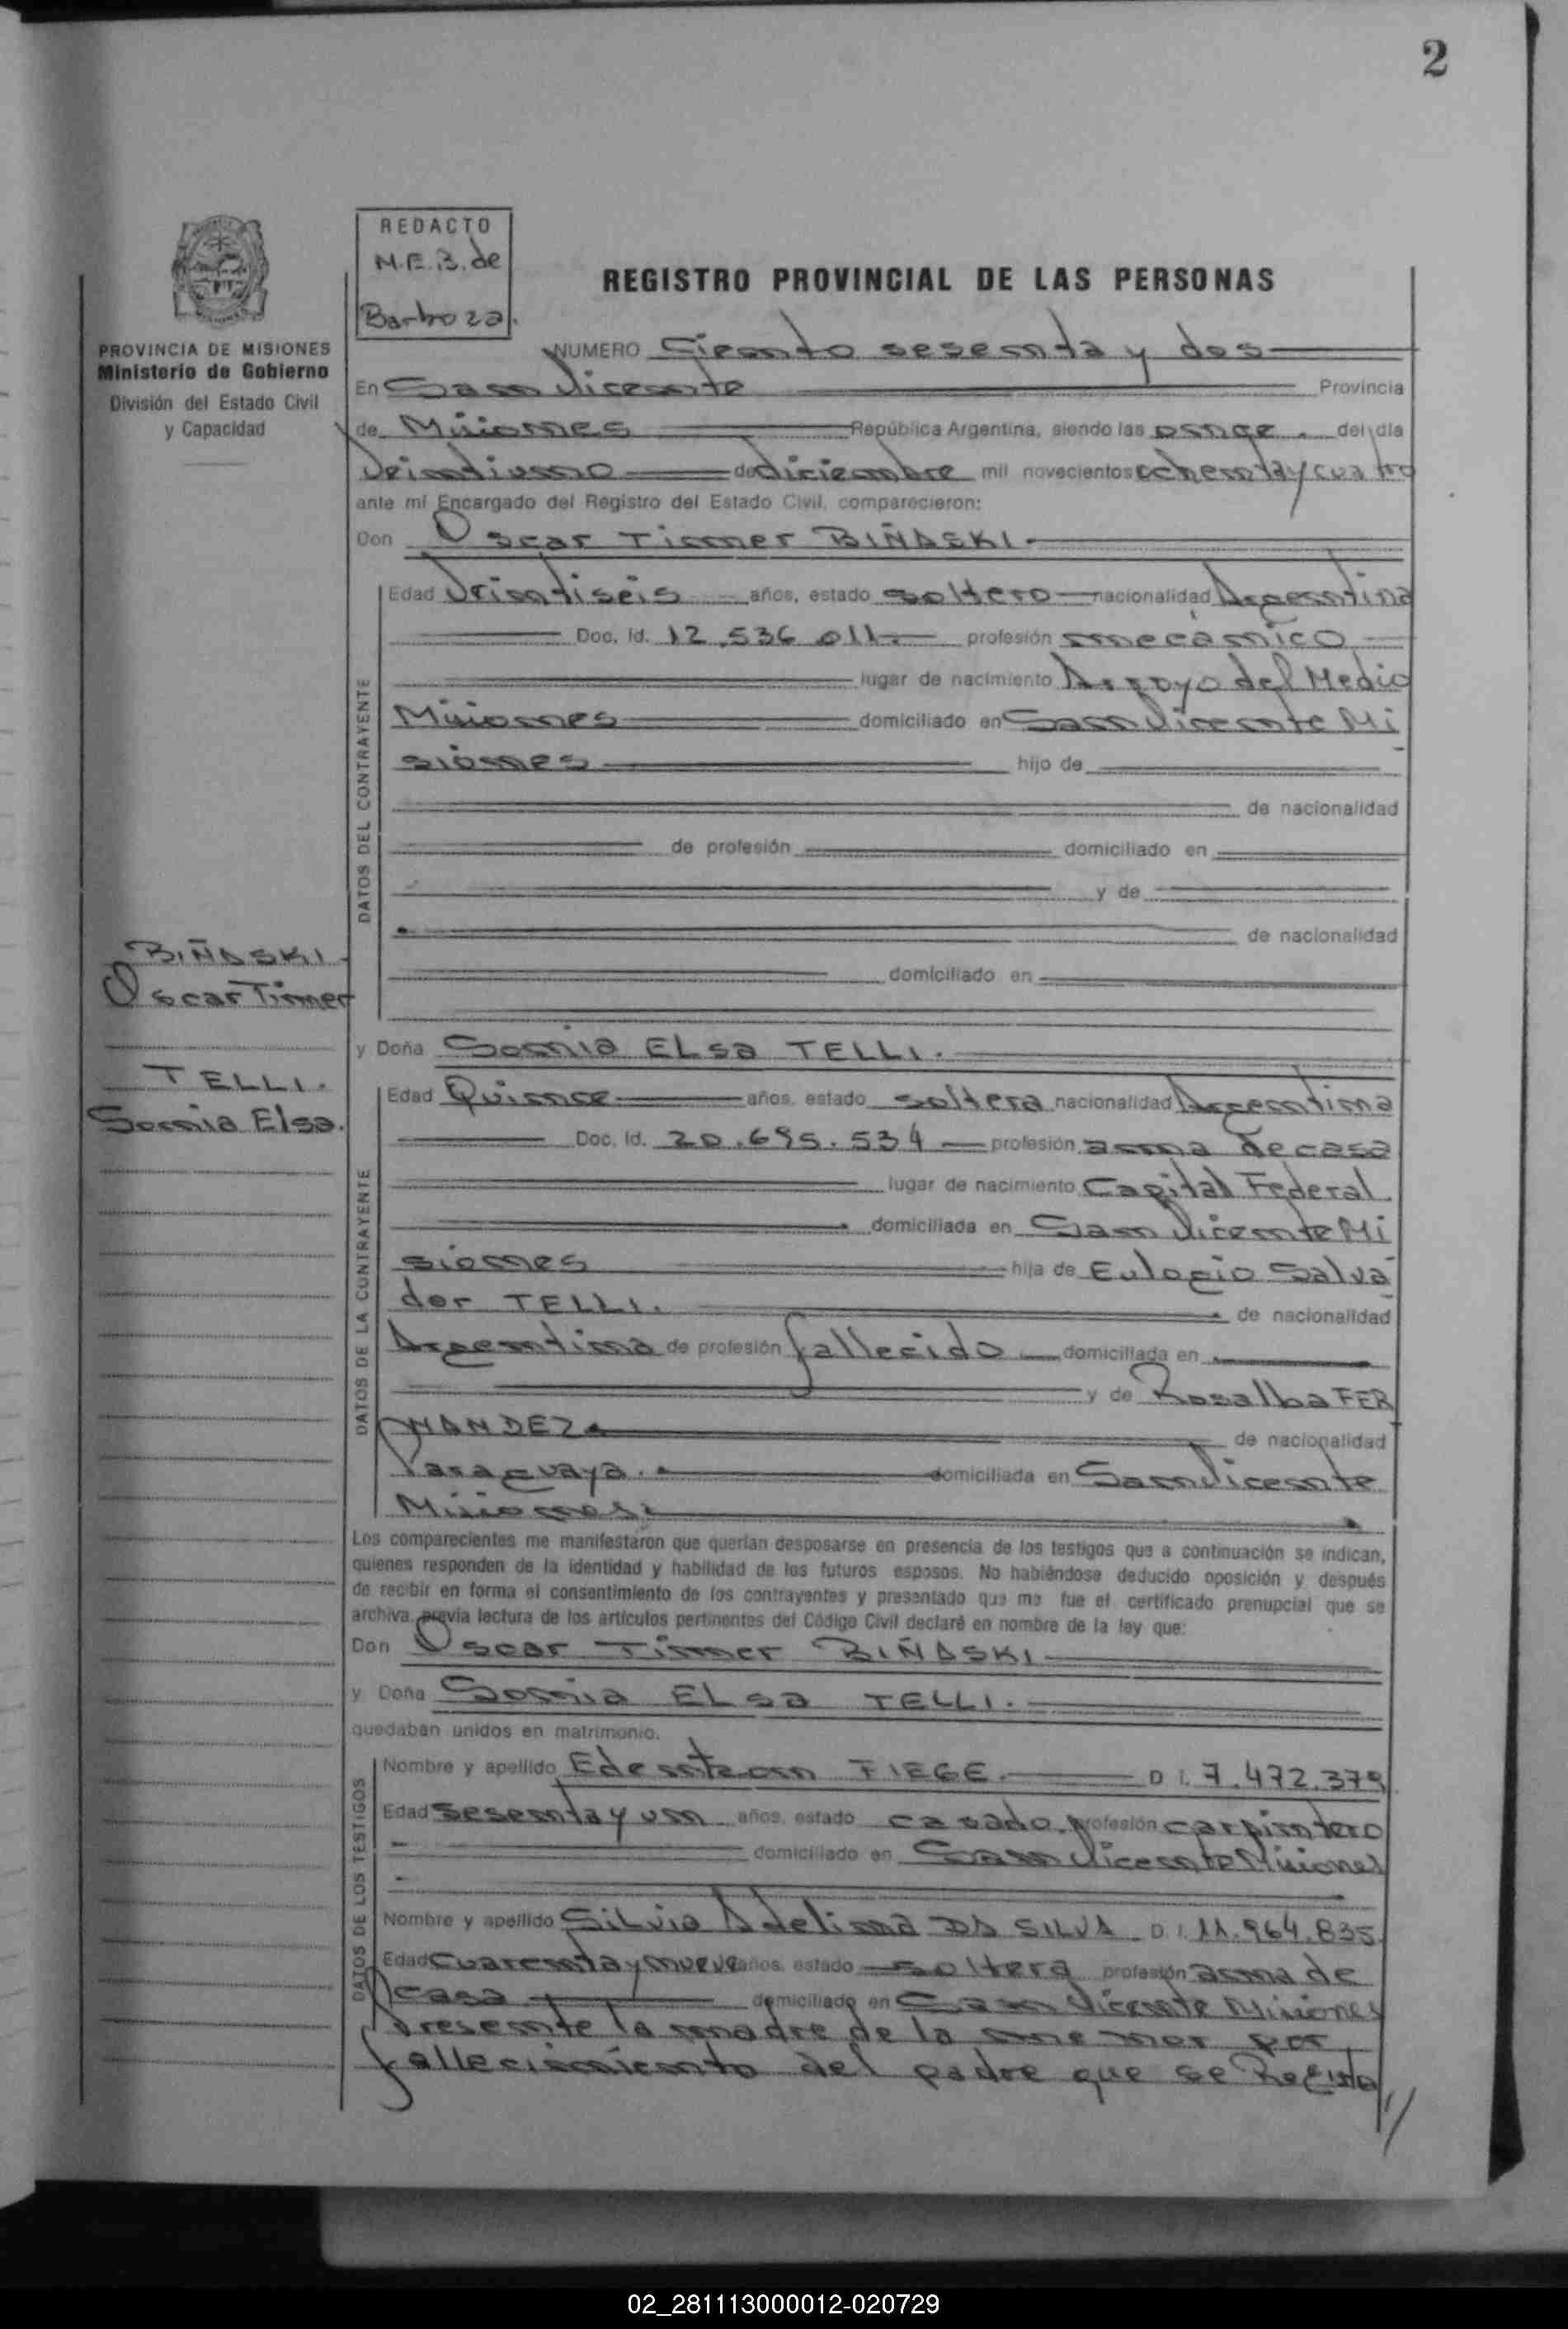 2
REDACTO
M.E.B. de
Barboza.
REGISTRO PROVINCIAL DE LAS PERSONAS
PROVINCIA DE MISIONES
Ministerio de Gobierno
División del Estado Civil
y Capacidad
NUMERO Ciento sesenta y dos
En San Vicente Provincia
de Misiones República Argentina, siendo las onze. del día
veintiuno de diciembre mil novecientos ochenta y cuatro
ante mí Encargado del Registro del Estado Civil, comparecieron:
Don Oscar Timer BIÑASKI.
DATOS DEL CONTRAYENTE
Edad Veintiseis años, estado soltero nacionalidad Argentina
Doc. Id. 12.536 011. profesión mecánico
lugar de nacimiento Arroyo del Medio
Misiones domiciliado en San Vicente Mi
siones hijo de
de nacionalidad
de profesión domiciliado en
y de
de nacionalidad
domiciliado en
BIÑASKI
Oscar Timer
TELLI.
Sonia Elsa.
y Doña Sonia ELsa TELLI.
DATOS DE LA CONTRAYENTE
Edad Quince años, estado soltera nacionalidad Argentina
Doc. Id. 20.695.534 profesión ama de casa
lugar de nacimiento Capital Federal
domiciliada en San Vicente Mi
siones hija de Eulogio Salva
dor TELLI. de nacionalidad
Argentina de profesión fallecido domiciliada en
y de Rosalba FER
NANDEZ de nacionalidad
Paraguaya. domiciliada en San Vicente
Misiones.
Los comparecientes me manifestaron que querían desposarse en presencia de los testigos que a continuación se indican,
quienes responden de la identidad y habilidad de los futuros esposos. No habiéndose deducido oposición y después
de recibir en forma el consentimiento de los contrayentes y presentado que me fue el certificado prenupcial que se
archiva, previa lectura de los artículos pertinentes del Código Civil declaré en nombre de la ley que:
Don Oscar Timer BIÑASKI
y Doña Sonia ELsa TELLI.
quedaban unidos en matrimonio.
DATOS DE LOS TESTIGOS
Nombre y apellido FIEGE. D I. 7.472.379
Edad sesenta y un años, estado casado. profesión carpintero
domiciliado en San Vicente Misiones
Nombre y apellido Silvia Adelina DA SILVA D. I. 11.964.835
Edad cuarenta y nueve años, estado soltera profesión ama de
casa domiciliado en San Vicente Misiones
Presente la madre de la menor por
fallecimiento del padre que se Registra
//
02_281113000012-020729